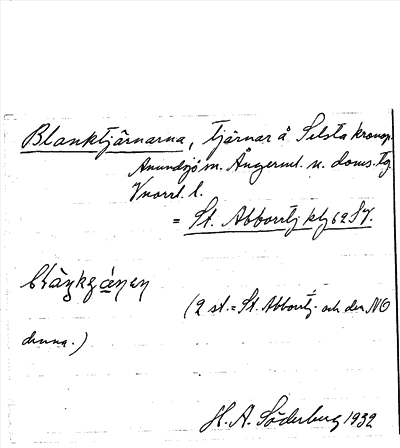 Blanktjärnarna, tjärnar å Selsta kronop.
Anundsjö sn. Ångerml. n. doms. tg.
Vnorrl. l.
= St. Abborrtj kbg 62 SV.
(2 st. = St. Abborrtj. och den NO
denna.)
H. A. Söderberg 1932